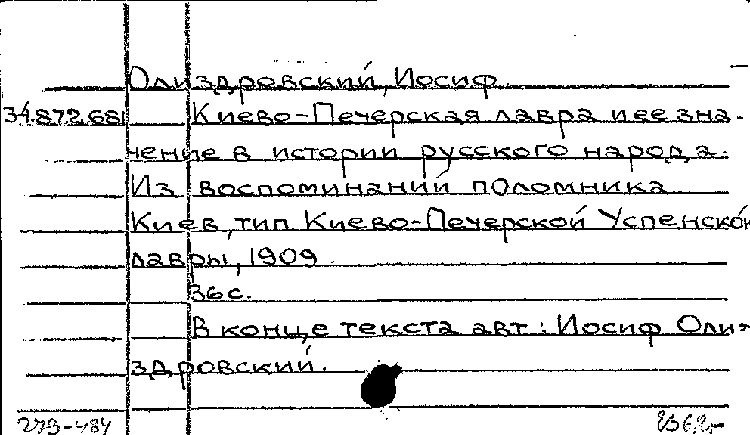 Олиздровский, Иосиф.
34.872.68 Киево-Печерская лавра и ее зна-
чение в истории русского народа.
Из воспоминаний поломника
Киев, тип Киево-Печерской Успенской
лавры, 1909
36с.
В конце текста авт: Иосиф Оли-
здровский.
293-484